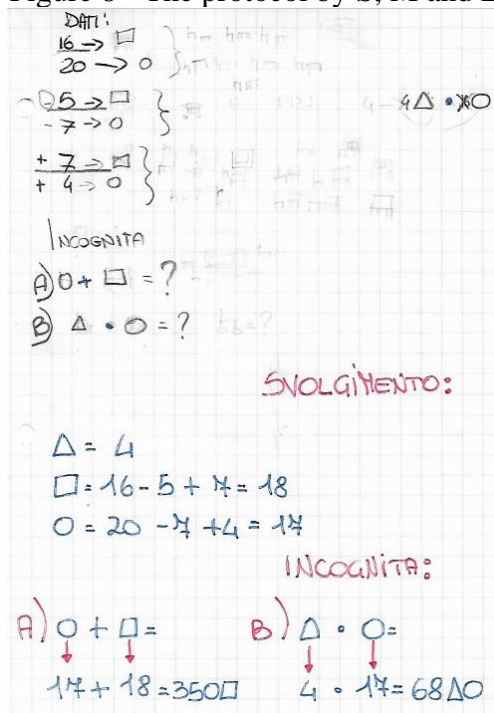 The protocol by S, M and
DATI:
16 → □
20 → O
- 5 → □
- 7 → O
4 △ • O
+ 7 → □
+ 4 → O
INCOGNITA
A) O + □ = ?
B) △ • O = ?
SVOLGIMENTO:
△ = 4
□ = 16 - 5 + 7 = 18
O = 20 - 7 + 4 = 17
INCOGNITA:
A) O + □ =
B) △ • O =
17 + 18 = 35O□
4 • 17 = 68△O